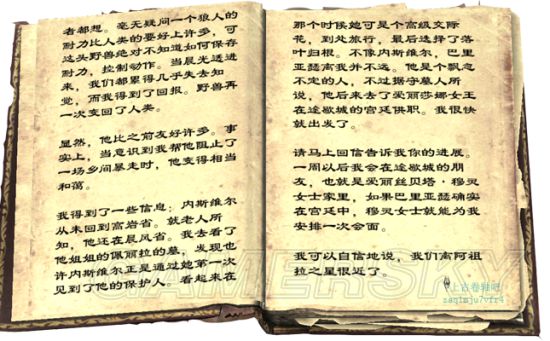 者都想。毫无疑问一个狼人的
耐力比人类的要好上许多，可
这头野兽绝对不知道如何保存
耐力，控制动作。当晨光透进
来，我们都累得几乎失去知
觉，而我得到了回报。野兽再
一次变回了人类。
显然，他比之前友好许多。事
实上，当意识到我帮他阻止了
一场乡间暴走时，他变得相当
和蔼。
我得到了一些信息：内斯维尔
从未回到高岩省。就老人所
知，他还在晨风省。我去看了
他姐姐的佩丽拉的墓，发现也
许内斯维尔正是通过她第一次
见到了他的保护人。看起来在
那个时候她可是个高级交际
花，到处旅行，最后选择了落
叶归根。不像内斯维尔，巴里
亚瑟离我并不远。他是个飘忽
不定的人，不过据守墓人所
说，他后来去了爱丽莎娜女王
在途歇城的宫廷供职。我很快
就出发了。
请马上回信告诉我你的进展。
一周以后我会在途歇城的朋
友，也就是爱丽丝贝塔·穆灵
女士家里，如果巴里亚瑟确实
在宫廷中，穆灵女士就能为我
安排一次会面。
我可以自信地说，我们离阿祖
拉之星很近了。
GAMERSKY
上古卷轴吧
zaq1mju7vfr4